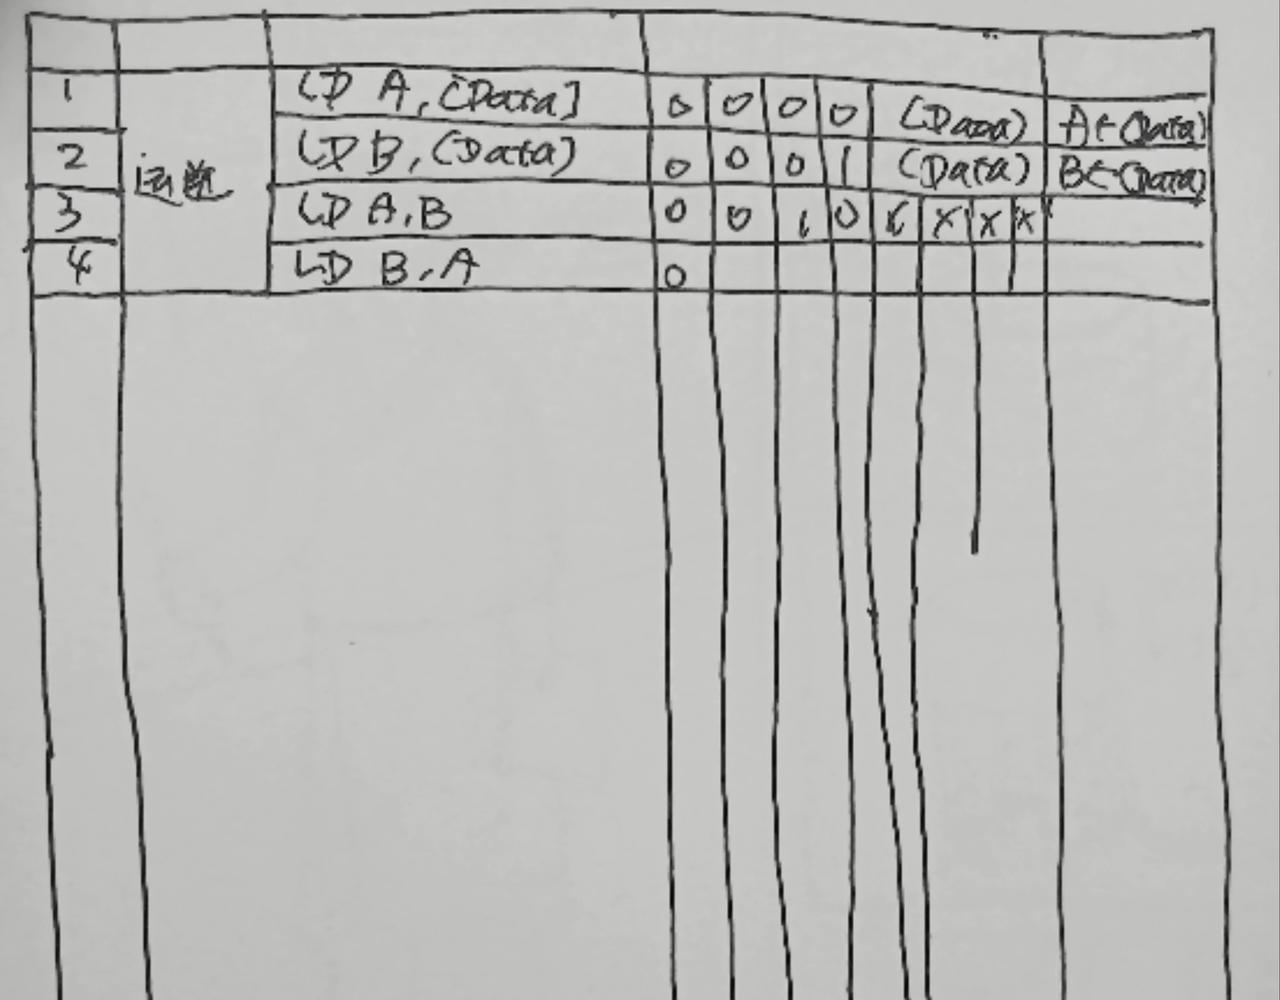 1 LD A, [Data] 0 0 0 0 (Data) A←(Data)
2 LD B, (Data) 0 0 0 1 (Data) B←(Data)
3 LD A,B 0 0 1 0 x x x x
4 LD B,A 0